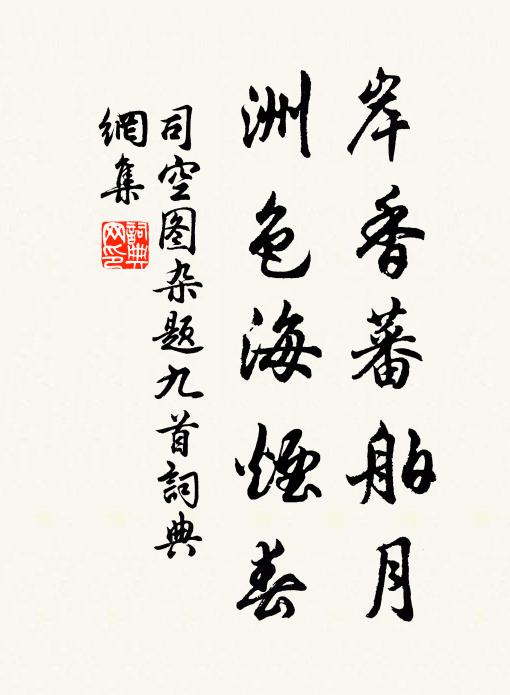 岸香蕃舶月
洲色海煙春
司空图杂题九首詞典
網集
詞典
网印